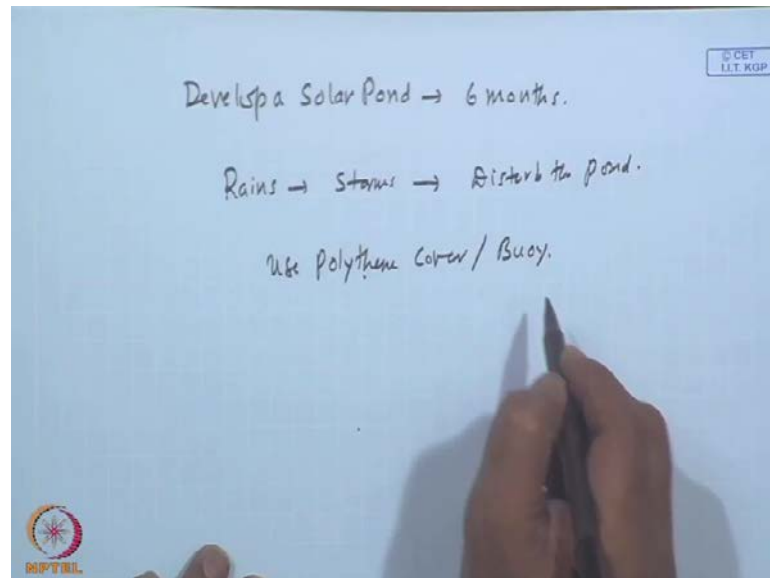 © CET
I.I.T. KGP
Develop a Solar Pond → 6 months.
Rains → Storms → Disturb the pond.
Use Polythene Cover / Buoy.
NPTEL